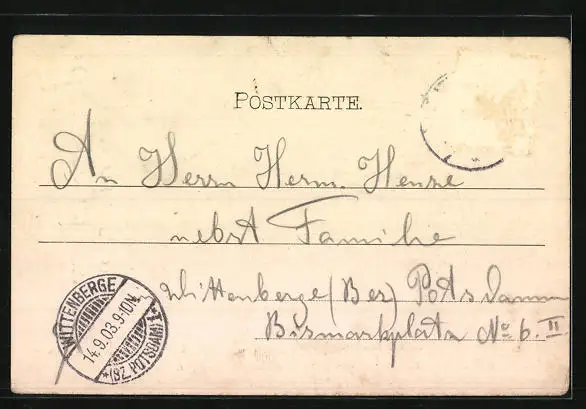 POSTKARTE.
An Herrn Herm. Henze
nebst Familie
in Wittenberge (Bez Potsdamm
Bismarkplatz No 6. II
WITTENBERGE
14.9.03.9-10N.
*(BZ. POTSDAM)1*